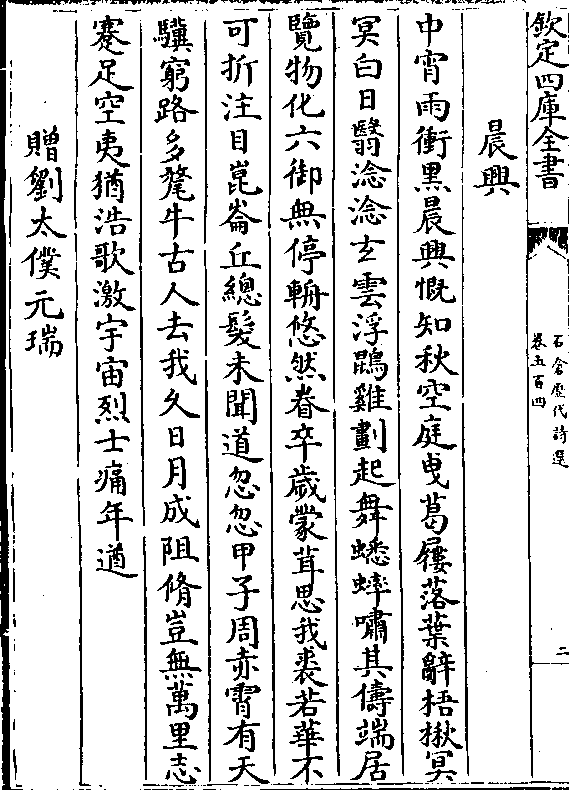 欽定四庫全書
石倉歷代詩選
卷五百四
二
晨興
中宵雨衝黑晨興慨知秋空庭曳葛屨落葉辭梧楸冥
冥白日翳淰淰玄雲浮鵾雞劃起舞蟋蟀嘯其儔端居
覽物化六御無停輈悠然眷卒歲蒙茸思我裘若華不
可折注目崑崙丘總髮未聞道忽忽甲子周赤霄有天
驥窮路多髦牛古人去我久日月成阻脩豈無萬里志
蹇足空夷猶浩歌激宇宙烈士痛年遒
贈劉太僕元瑞